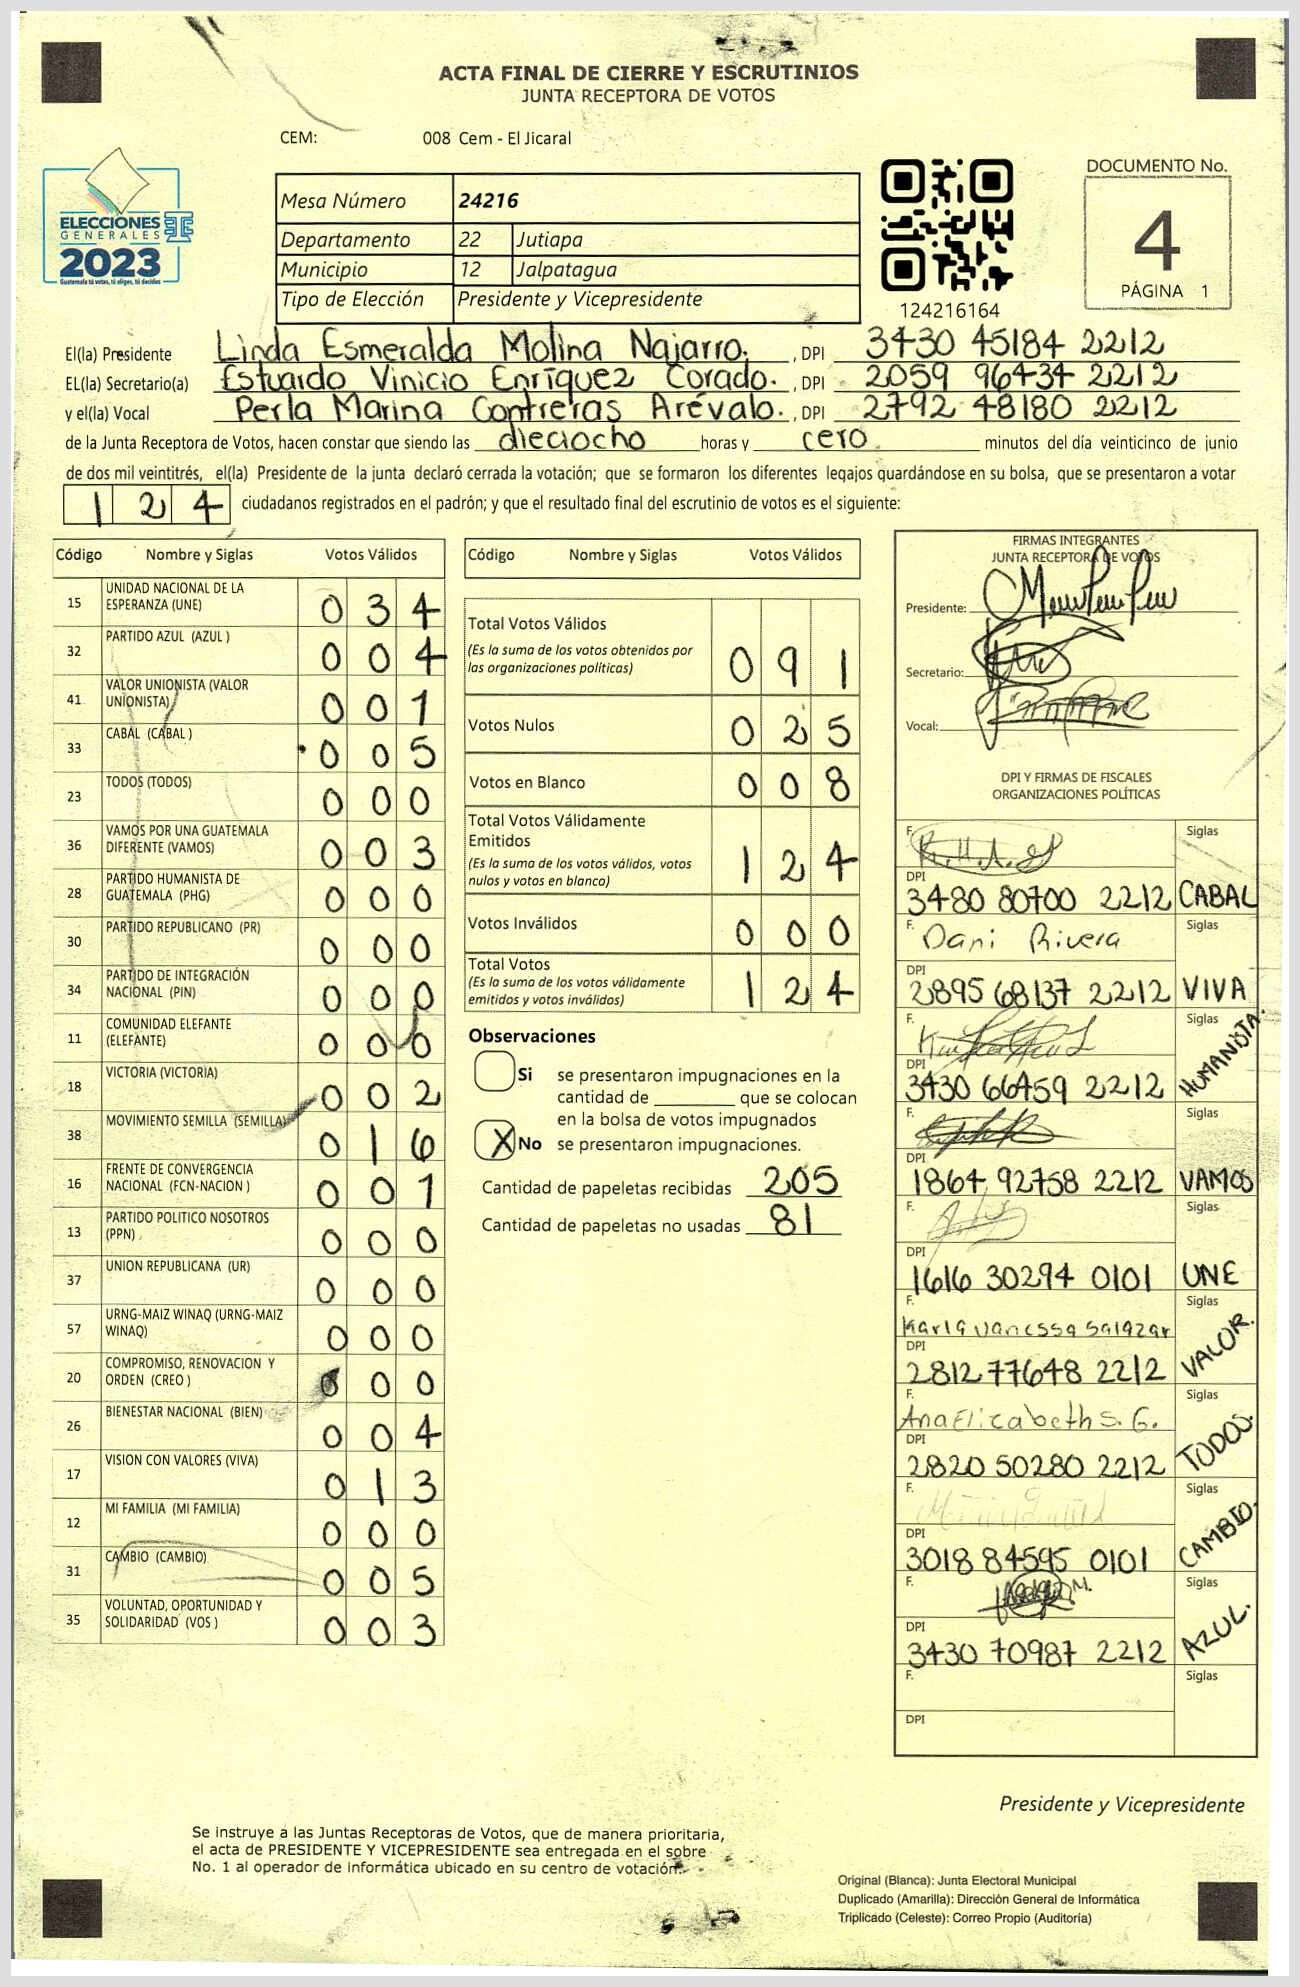 ACTA FINAL DE CIERRE Y ESCRUTINIOS
JUNTA RECEPTORA DE VOTOS
CEM: 008 Cem - El Jicaral
ELECCIONES
GENERALES TSE
2023
Guatemala tú votas, tú eliges, tú decides
Mesa Número 24216
Departamento 22 Jutiapa
Municipio 12 Jalpatagua
Tipo de Elección Presidente y Vicepresidente
124216164
DOCUMENTO No.
4
PÁGINA 1
El(la) Presidente Linda Esmeralda Molina Najarro. , DPI 3430 45184 2212
EL(la) Secretario(a) Estuardo Vinicio Enríquez Corado. , DPI 2059 96434 2212
y el(la) Vocal Perla Marina Contreras Arévalo. , DPI 2792 48180 2212
de la Junta Receptora de Votos, hacen constar que siendo las dieciocho horas y cero minutos del día veinticinco de junio
de dos mil veintitrés, el(la) Presidente de la junta declaró cerrada la votación; que se formaron los diferentes legajos guardándose en su bolsa, que se presentaron a votar
1 2 4 ciudadanos registrados en el padrón; y que el resultado final del escrutinio de votos es el siguiente:
Código Nombre y Siglas Votos Válidos
15 UNIDAD NACIONAL DE LA ESPERANZA (UNE) 0 3 4
32 PARTIDO AZUL (AZUL ) 0 0 4
41 VALOR UNIONISTA (VALOR UNIONISTA) 0 0 1
33 CABAL (CABAL ) 0 0 5
23 TODOS (TODOS) 0 0 0
36 VAMOS POR UNA GUATEMALA DIFERENTE (VAMOS) 0 0 3
28 PARTIDO HUMANISTA DE GUATEMALA (PHG) 0 0 0
30 PARTIDO REPUBLICANO (PR) 0 0 0
34 PARTIDO DE INTEGRACIÓN NACIONAL (PIN) 0 0 0
11 COMUNIDAD ELEFANTE (ELEFANTE) 0 0 0
18 VICTORIA (VICTORIA) 0 0 2
38 MOVIMIENTO SEMILLA (SEMILLA) 0 1 6
16 FRENTE DE CONVERGENCIA NACIONAL (FCN-NACION ) 0 0 1
13 PARTIDO POLITICO NOSOTROS (PPN) 0 0 0
37 UNION REPUBLICANA (UR) 0 0 0
57 URNG-MAIZ WINAQ (URNG-MAIZ WINAQ) 0 0 0
20 COMPROMISO, RENOVACION Y ORDEN (CREO ) 0 0 0
26 BIENESTAR NACIONAL (BIEN) 0 0 4
17 VISION CON VALORES (VIVA) 0 1 3
12 MI FAMILIA (MI FAMILIA) 0 0 0
31 CAMBIO (CAMBIO) 0 0 5
35 VOLUNTAD, OPORTUNIDAD Y SOLIDARIDAD (VOS ) 0 0 3
Código Nombre y Siglas Votos Válidos
Total Votos Válidos
(Es la suma de los votos obtenidos por
las organizaciones políticas) 0 9 1
Votos Nulos 0 2 5
Votos en Blanco 0 0 8
Total Votos Válidamente
Emitidos
(Es la suma de los votos válidos, votos
nulos y votos en blanco) 1 2 4
Votos Inválidos 0 0 0
Total Votos
(Es la suma de los votos válidamente
emitidos y votos inválidos) 1 2 4
Observaciones
Si se presentaron impugnaciones en la
cantidad de ________ que se colocan
en la bolsa de votos impugnados
X No se presentaron impugnaciones.
Cantidad de papeletas recibidas 205
Cantidad de papeletas no usadas 81
FIRMAS INTEGRANTES
JUNTA RECEPTORA DE VOTOS
Presidente:
Secretario:
Vocal:
DPI Y FIRMAS DE FISCALES
ORGANIZACIONES POLÍTICAS
F. Siglas
DPI
3480 80700 2212 CABAL
F. Dani Rivera Siglas
DPI
2895 68137 2212 VIVA
F. Siglas
DPI
3430 66459 2212 HUMANISTA.
F. Siglas
DPI
1864 92758 2212 VAMOS
F. Siglas
DPI
1616 30294 0101 UNE
F. Siglas
Karla Vanessa Salazar
DPI
2812 77648 2212 VALOR.
F. Siglas
Ana Elizabeth S. G.
DPI
2820 50280 2212 TODOS.
F. Siglas
DPI
3018 84595 0101 CAMBIO.
F. Siglas
DPI
3430 70987 2212 AZUL.
F. Siglas
DPI
Presidente y Vicepresidente
Se instruye a las Juntas Receptoras de Votos, que de manera prioritaria,
el acta de PRESIDENTE Y VICEPRESIDENTE sea entregada en el sobre
No. 1 al operador de informática ubicado en su centro de votación.
Original (Blanca): Junta Electoral Municipal
Duplicado (Amarilla): Dirección General de Informática
Triplicado (Celeste): Correo Propio (Auditoría)